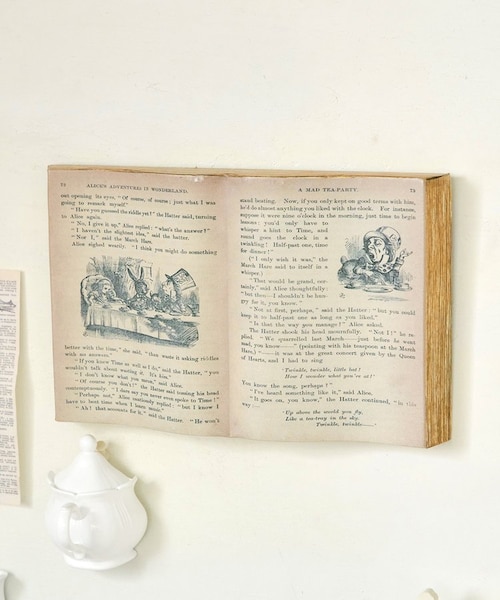 72 ALICE'S ADVENTURES IN WONDERLAND.
out opening its eyes, "Of course, of course; just what I was
going to remark myself."
"Have you guessed the riddle yet?" the Hatter said, turning
to Alice again.
"No, I give it up," Alice replied: "what's the answer?"
"I haven't the slightest idea," said the Hatter.
"Nor I," said the March Hare.
Alice sighed wearily. "I think you might do something
better with the time," she said, "than waste it asking riddles
with no answers."
"If you knew Time as well as I do," said the Hatter, "you
wouldn't talk about wasting it. It's him."
"I don't know what you mean," said Alice.
"Of course you don't!" the Hatter said, tossing his head
contemptuously. "I dare say you never even spoke to Time!"
"Perhaps not," Alice cautiously replied: "but I know I
have to beat time when I learn music."
"Ah! that accounts for it," said the Hatter. "He won't
A MAD TEA-PARTY. 73
stand beating. Now, if you only kept on good terms with him,
he'd do almost anything you liked with the clock. For instance,
suppose it were nine o'clock in the morning, just time to begin
lessons: you'd only have to
whisper a hint to Time, and
round goes the clock in a
twinkling! Half-past one, time
for dinner!"
("I only wish it was," the
March Hare said to itself in a
whisper.)
"That would be grand, cer-
tainly," said Alice thoughtfully:
"but then—I shouldn't be hun-
gry for it, you know."
"Not at first, perhaps," said the Hatter: "but you could
keep it to half-past one as long as you liked."
"Is that the way you manage?" Alice asked.
The Hatter shook his head mournfully. "Not I!" he re-
plied. "We quarrelled last March—just before he went
mad, you know—" (pointing with his teaspoon at the March
Hare,) "—it was at the great concert given by the Queen
of Hearts, and I had to sing
'Twinkle, twinkle, little bat!
How I wonder what you're at!'
You know the song, perhaps?"
"I've heard something like it," said Alice.
"It goes on, you know," the Hatter continued, "in this
way:—
'Up above the world you fly,
Like a tea-tray in the sky.
Twinkle, twinkle——'